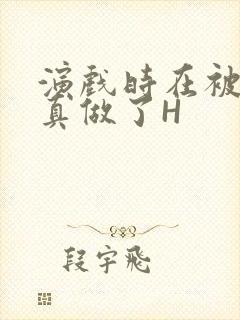 演戏时在被
真做了H
段宇飛